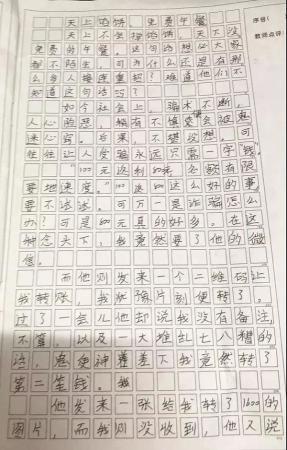 序号(
教师点评(
天上馅饼、免费午餐
天上不会掉馅饼,天下没
免费的午餐。这句话想必大家
都不陌生,可为什么还是有那
么多人接连重蹈?难道他们不
知道这句话吗?
如今社会上,骗术不断,
人心险恶,稍有不慎变会被鬼
迷心窍。后果,不堪设想。可
往往让人受骗永远只需一字"钱"
"100元返利500元,名额有限
要地速度。"100返500这么好的事
要不试试。可万一是诈骗怎么
办?可是500元真的好多。在这
种念天下,我竟然要了他的微
信。
而他则发来一个二维码让
我转账,我犹豫片刻便转了。
过了一会儿他却说我没有备注,
不算。以及一大堆乱七八糟的
话,鬼使神差差下我竟然转了
第二笔钱。我
他发来一张给我转了1600的
图片,而我则没收到,他又说